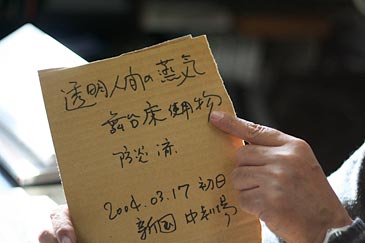 透明人間の蒸気
舞台床使用物
防炎済
2004.03.17 初日
新国 中劇場